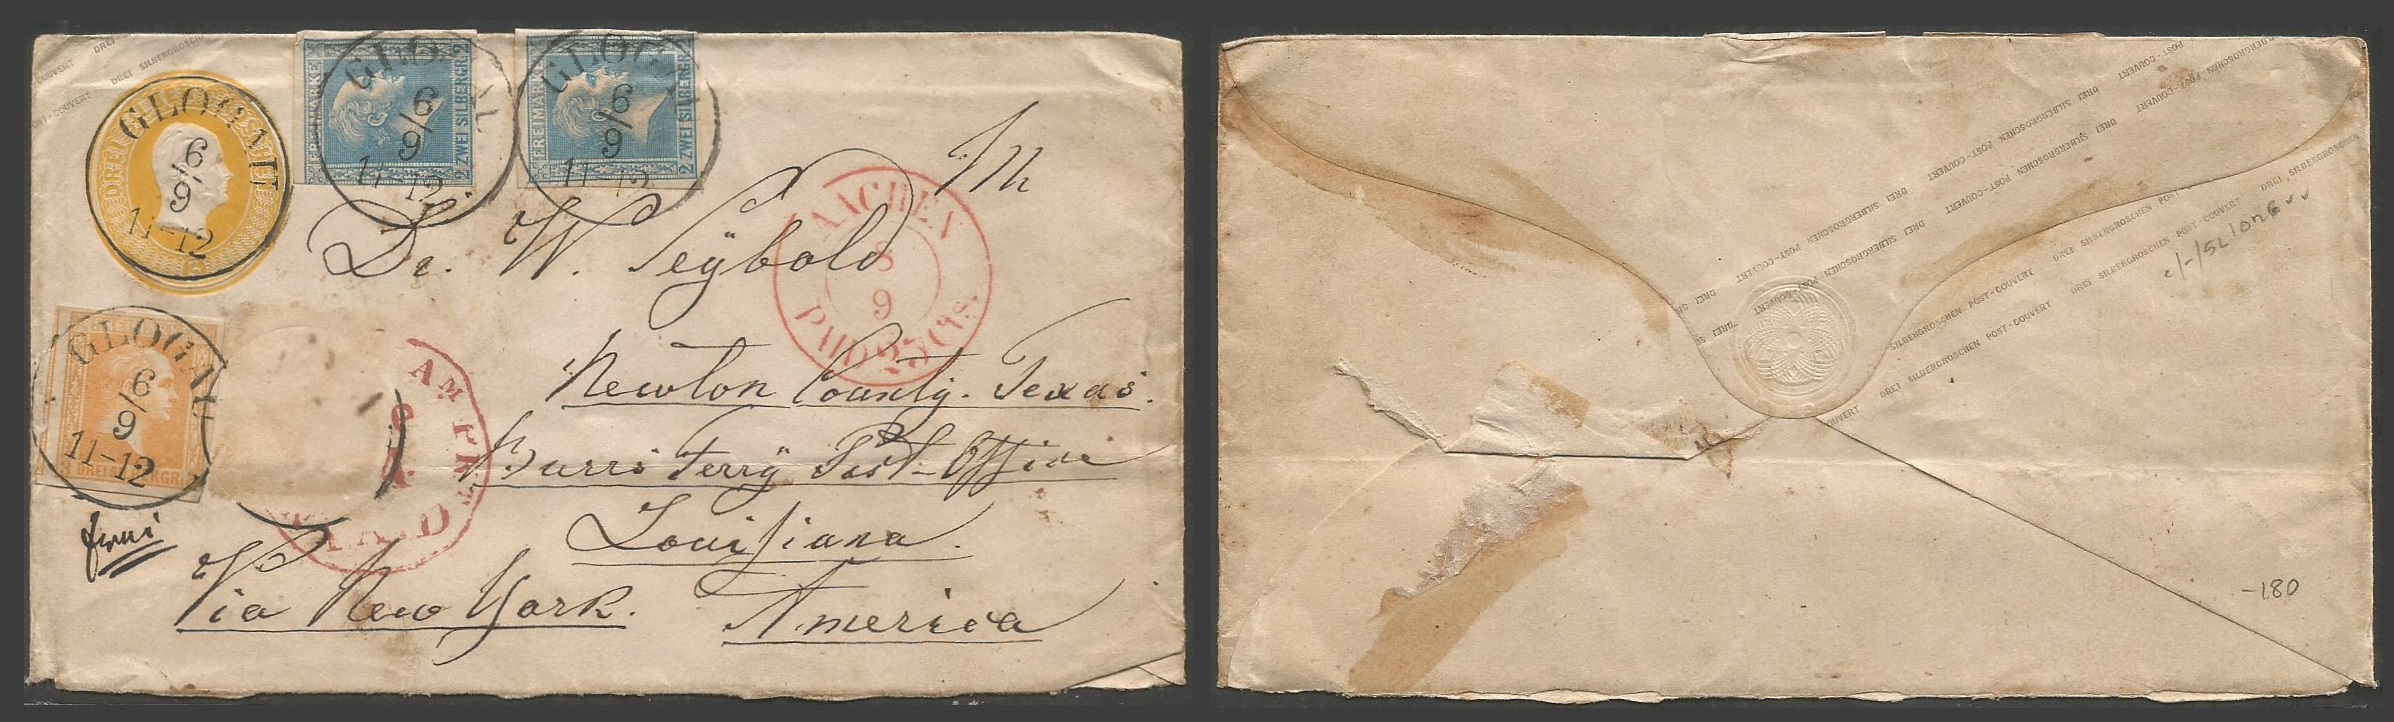 DREI SILBERGROSCHEN POST-COUVERT
GLOGAU
6/9
11-12
FREIMARKE
2 ZWEI SILBERGR. 2
GLOGAU
6/9
11-12
FREIMARKE
2 ZWEI SILBERGR. 2
GLOGAU
6/9
11-12
AACHEN
8
9
PAID 23 Cts.
Dr. W. Seÿbold
Newton County. Texas.
GLOGAU
6/9
11-12
3 DREI SILBERGR. 3
AM
PAID
Burrs Ferrÿ Post-Office
Louisiana.
Via New York.
America
DREI SILBERGROSCHEN POST-COUVERT
DREI SILBERGROSCHEN POST-COUVERT
DREI SILBERGROSCHEN POST-COUVERT
DREI SILBERGROSCHEN POST-COUVERT
-180